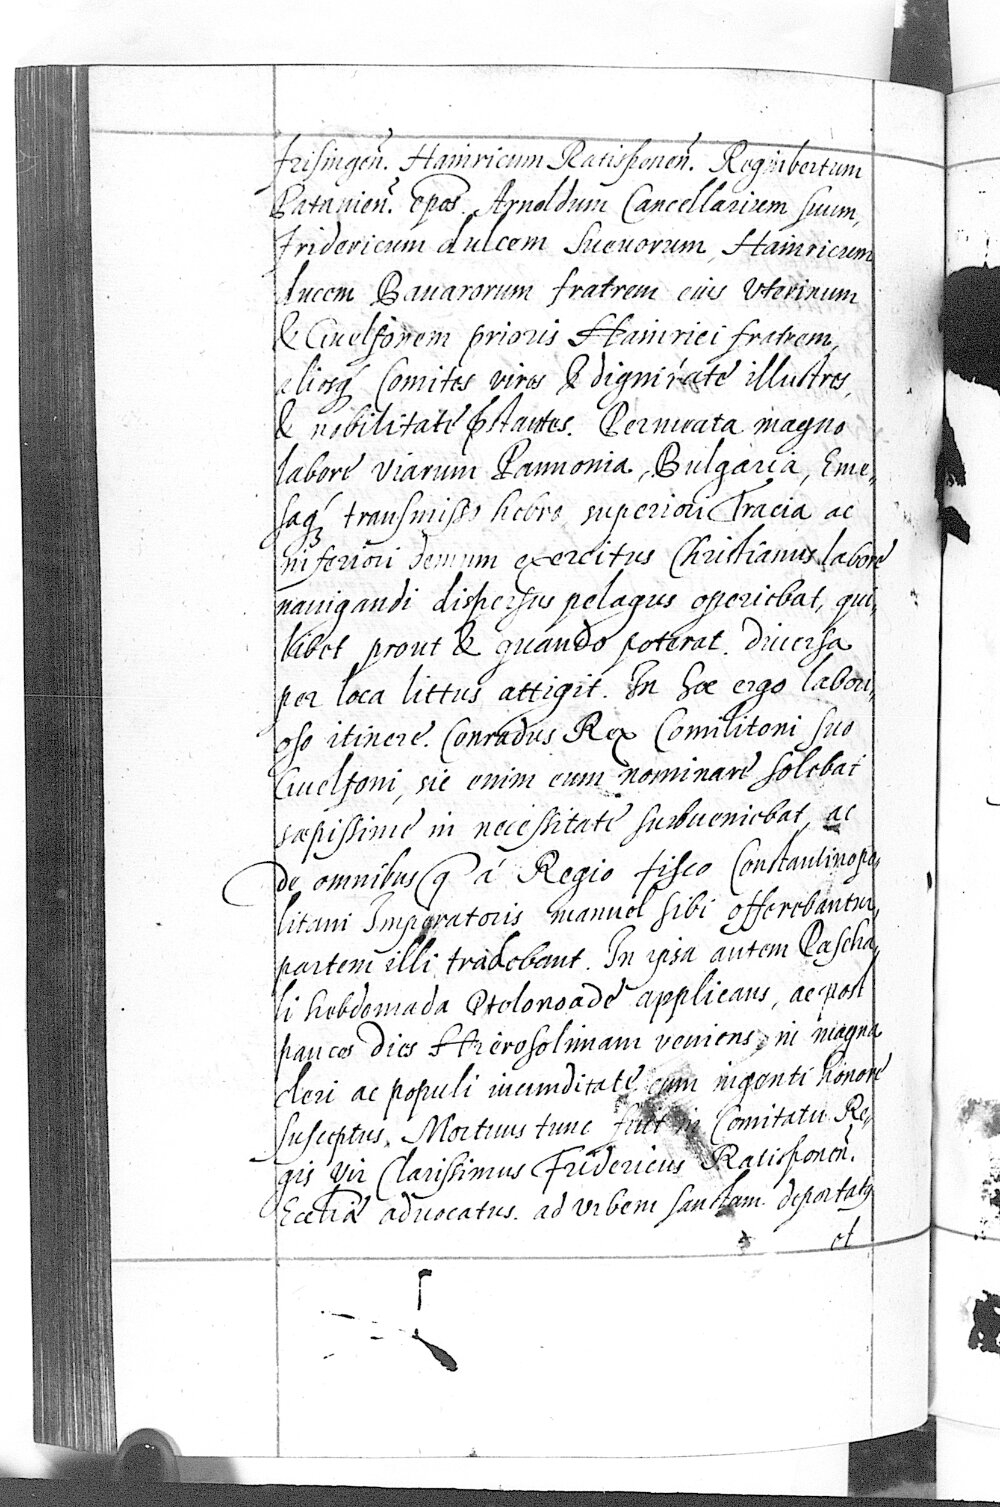 frisingen̄. Hainricum Ratisponen̄. Reginbertum
Patauien̄. ep̄os. Arnoldum Cancellarium suum,
fridericum dulcem Sueuorum, Hainricum
ducem Bauarorum fratrem eius Vterinum
& Guelfonem prioris Hainrici fratrem,
aliosq́ꝫ Comites viros & dignitaté illustres,
& nobilitaté p̄stantes. Permeata magno
laboré viarum Pannonia, Bulgaria, Eme,,
saq́ꝫ transmisso hebro superiori Tracia ac
inferiori demum exercitus Christianus laboré
nauigandi dispersus pelagus operiebat, qui,,
libet prout & quando poterat. diuersa
per loca littus attigit. In hoc ergo labori,,
oso itineré. Conradus Rex Comilitoni suo
Guelfoni, sic enim eum nominaré solebat
sæpissimé in necessitaté subueniebat, ac
de omnibus q̄ á Regio fisco Constantinopo,,
litani Imperatoris manuel sibi offerebantur,
partem illi tradebant. In ipsa autem Pascha,,
li hebdomada Ptolomadé applicans, ac post
paucos dies Hierosolimam veniens, in magna
cleri ac populi iucunditaté cum ingenti honoré
susceptus. Mortuus tunc fuit in Comitatu Re,,
gis vir Clarissimus Fridericus Ratisponen̄.
Eccliæ aduocatus. ad vrbem sanctam deportatꝰ
et